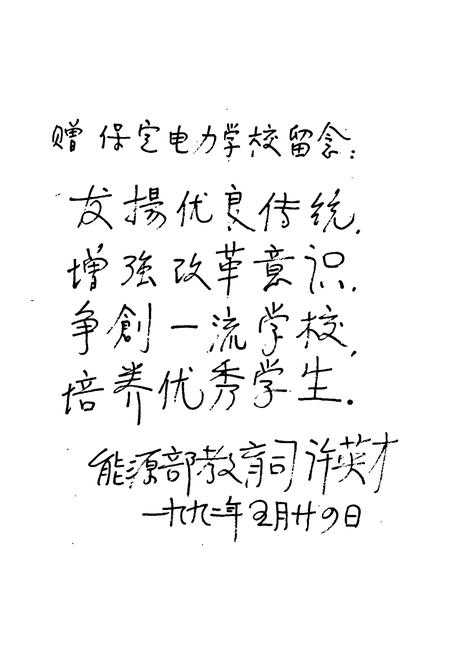 赠 保定电力学校留念：
发揚优良传统，
增強改革意识，
争創一流学校，
培养优秀学生．
能源部教育司 许英才
一九九二年五月廿四日